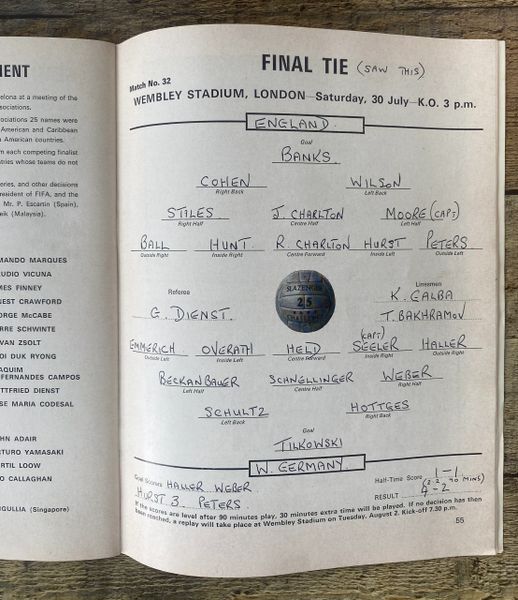 MENT
elona at a meeting of the
sociations.
sociations 25 names were
American and Caribbean
n American countries.
m each competing finalist
ntries whose teams do not
eries, and other decisions
resident of FIFA, and the
Mr. P. Escartin (Spain),
eik (Malaysia).
MANDO MARQUES
UDIO VICUNA
MES FINNEY
NEST CRAWFORD
ORGE McCABE
RRE SCHWINTE
VAN ZSOLT
OI DUK RYONG
AQUIM
FERNANDES CAMPOS
TTFRIED DIENST
SE MARIA CODESAL
HN ADAIR
RTURO YAMASAKI
RTIL LOOW
O CALLAGHAN
NGULLIA (Singapore)
FINAL TIE (SAW THIS)
Match No. 32
WEMBLEY STADIUM, LONDON—Saturday, 30 July—K.O. 3 p.m.
ENGLAND.
Goal
BANKS.
COHEN WILSON
Right Back Left Back
STILES J. CHARLTON MOORE (CAPT)
Right Half Centre Half Left Half
BALL HUNT. R. CHARLTON HURST PETERS
Outside Right Inside Right Centre Forward Inside Left Outside Left
Referee Linesmen
G. DIENST. K. GALBA
T. BAKHRAMOV
SLAZENGER
25
CHALLENGE
(CAPT)
EMMERICH. OVERATH HELD SEELER HALLER
Outside Left Inside Left Centre Forward Inside Right Outside Right
BECKANBAUER SCHNELLINGER WEBER
Left Half Centre Half Right Half
SCHULTZ HOTTGES
Left Back Right Back
Goal
TILKOWSKI
W. GERMANY.
Goal Scorers HALLER WEBER
HURST 3. PETERS.
Half-Time Score 1-1
(2-2 90 MINS)
RESULT 4-2
If the scores are level after 90 minutes play, 30 minutes extra time will be played. If no decision has then
been reached, a replay will take place at Wembley Stadium on Tuesday, August 2. Kick-off 7.30 p.m.
55